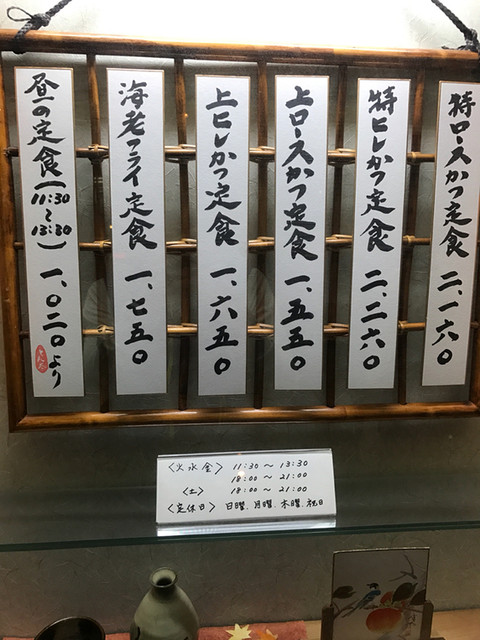 特ロースかつ定食 二、一六〇
特ヒレかつ定食 二、二六〇
上ロースかつ定食 一、五五〇
上ヒレかつ定食 一、六五〇
海老フライ定食 一、七五〇
昼の定食(11:30〜13:30) 一、〇二〇より
<火水金> 11:30 〜 13:30
18:00 〜 21:00
<土> 18:00 〜 21:00
<定休日> 日曜、月曜、木曜、祝日